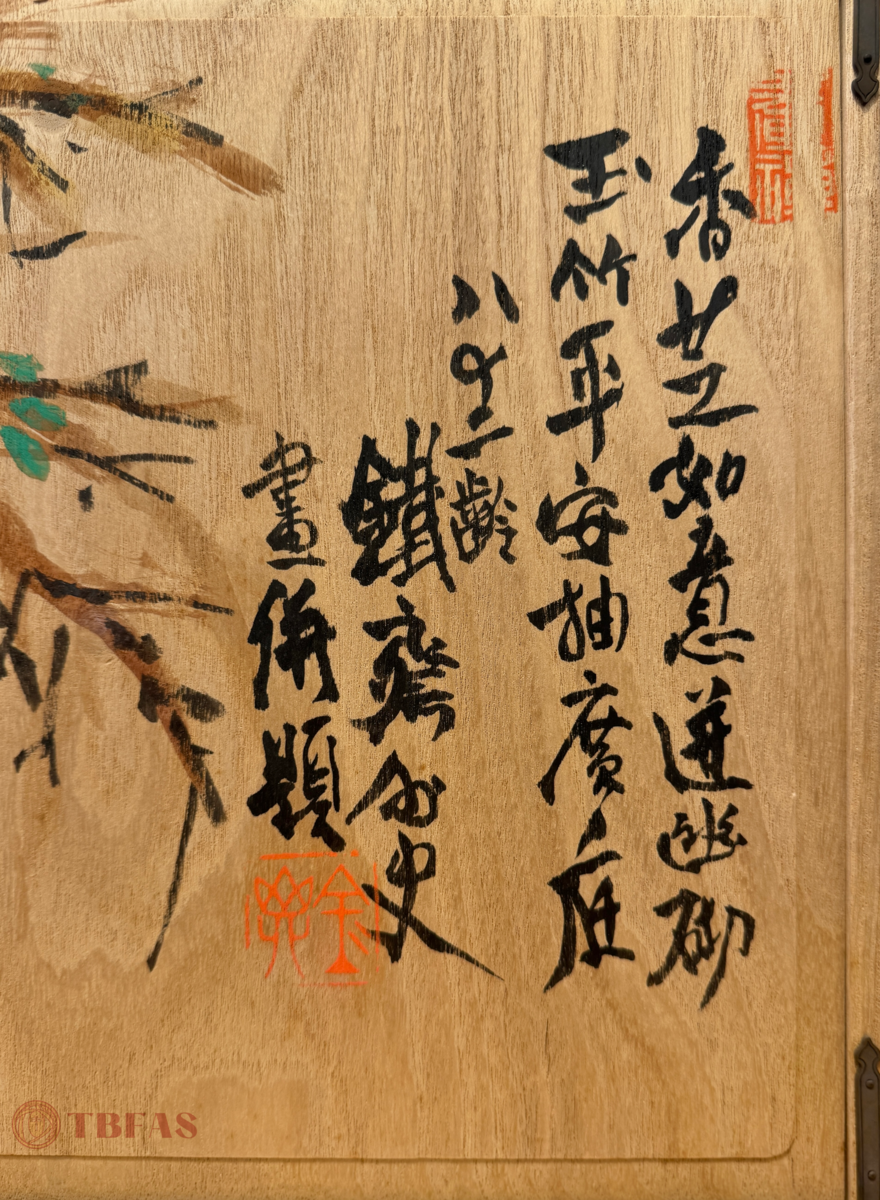 香芝如意迸幽砌
玉竹平安抽廣庭
八十二齡
鐵齋外史
畫併題
TBFAS